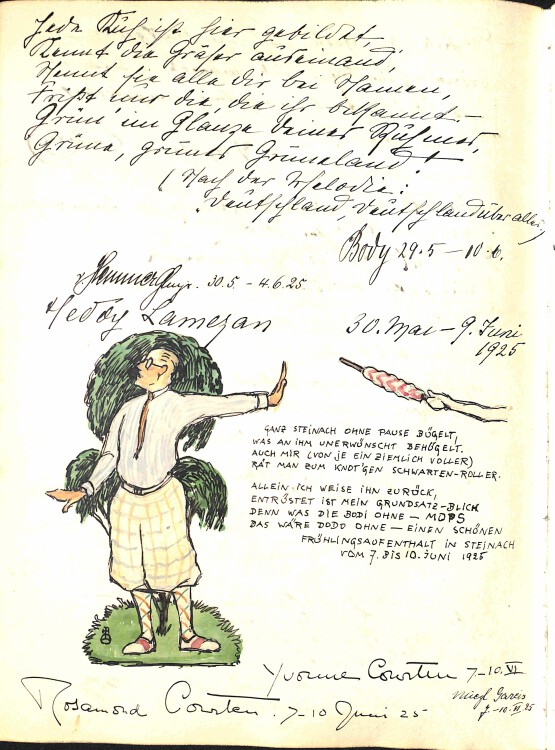 Jede Kuh ist hier gebildet,
Kennt die Gräser auseinand,
Nennt sie alle dir bei Namen,
Frißt nur die, die ihr bekannt.–
Grün' im Glanze deines Ruhmes,
Grüne, grünes Grüneland!
(Nach der Melodie:
"Deutschland, Deutschland über alles)
Body 29.5 – 10.6.
30.5 – 4.6.25
Heddy Lamezan
30. Mai – 9. Juni
1925
GANZ STEINACH OHNE PAUSE BÜGELT,
WAS AN IHM UNERWÜNSCHT BEHÜGELT.
AUCH MIR (VON JE EIN ZIEMLICH VOLLER)
RÄT MAN ZUM KNOT'GEN SCHWARTEN-ROLLER.
ALLEIN ICH WEISE IHN ZURÜCK,
ENTRÜSTET IST MEIN GRUNDSATZ-BLICK
DENN WAS DIE BODI OHNE — MOPS
DAS WÄRE DODO OHNE — EINEN SCHÖNEN
FRÜHLINGSAUFENTHALT IN STEINACH
VOM 7. BIS 10. JUNI 1925
Yvonne Courten 7–10.VI
Rosamond Courten. 7–10 Juni 25
7.–10.VI.25